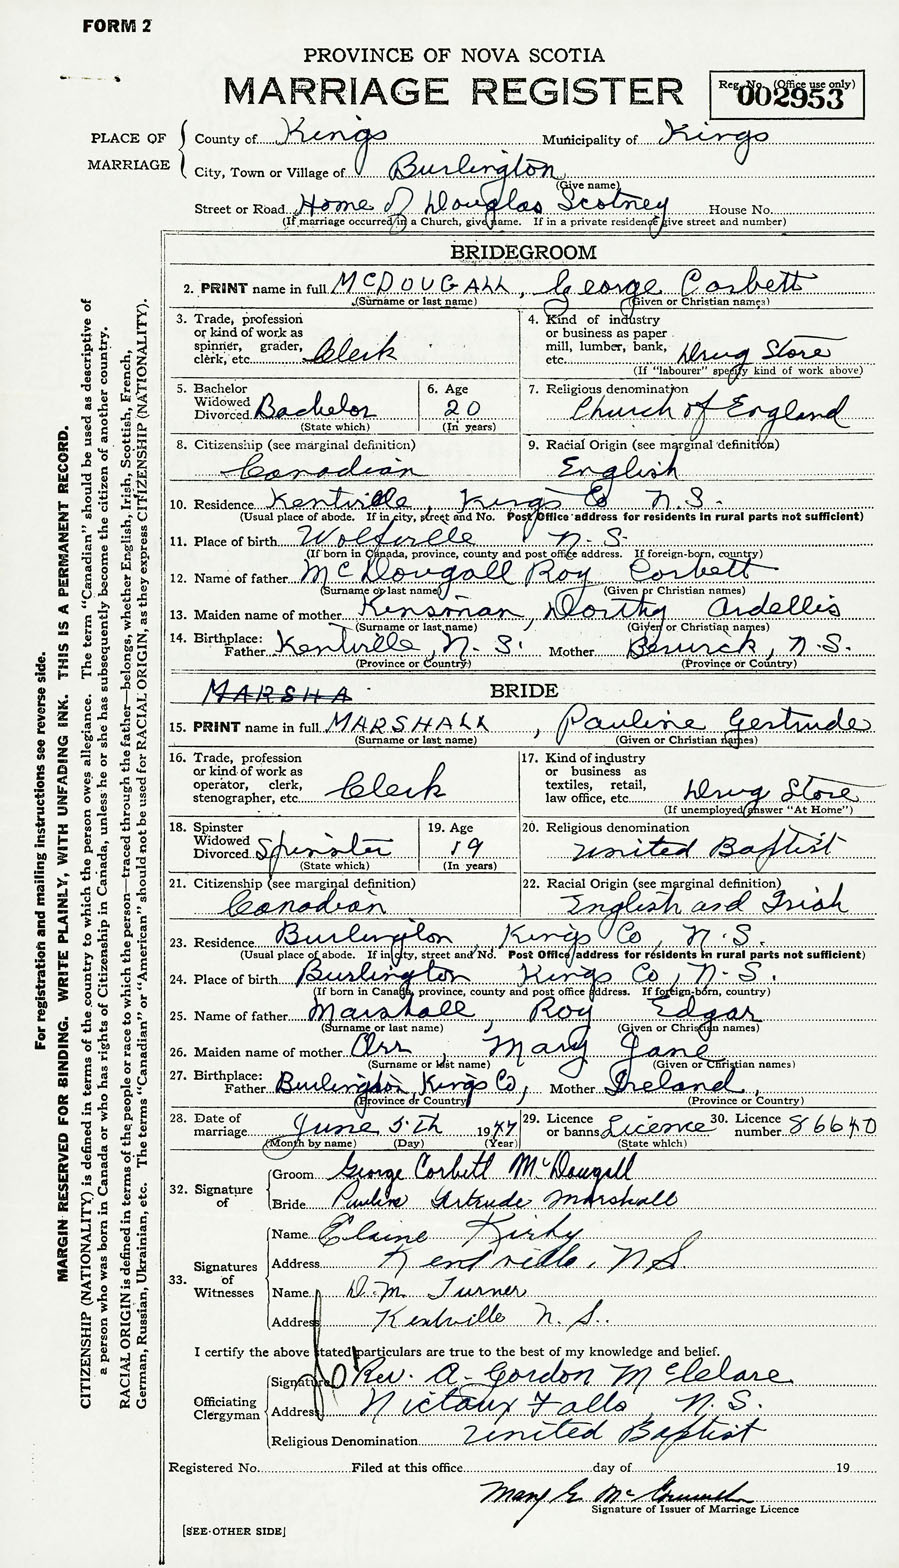 FORM 2
PROVINCE OF NOVA SCOTIA
MARRIAGE REGISTER
Reg. No. (Office use only)
002953
PLACE OF MARRIAGE
County of Kings Municipality of Kings
City, Town or Village of Burlington
(Give name)
Street or Road Home of Douglas Scotney House No.
(If marriage occurred in a Church, give name. If in a private residence give street and number)
BRIDEGROOM
2. PRINT name in full McDOUGALL, George Corbett
(Surname or last name) (Given or Christian names)
3. Trade, profession or kind of work as spinner, grader, clerk, etc. Clerk
4. Kind of industry or business as paper mill, lumber, bank, etc. Drug Store
(If "labourer" specify kind of work above)
5. Bachelor Widowed Divorced Bachelor
(State which)
6. Age 20
(In years)
7. Religious denomination Church of England
8. Citizenship (see marginal definition) Canadian
9. Racial Origin (see marginal definition) English
10. Residence Kentville, Kings Co N.S.
(Usual place of abode. If in city, street and No. Post Office address for residents in rural parts not sufficient)
11. Place of birth Wolfville N.S.
(If born in Canada, province, county and post office address. If foreign-born, country)
12. Name of father McDougall Roy Corbett
(Surname or last name) (Given or Christian names)
13. Maiden name of mother Kinsman, Dorthy Ardellis
(Surname or last name) (Given or Christian names)
14. Birthplace: Father Kentville, N.S. Mother Berwick, N.S.
(Province or Country) (Province or Country)
MARSHA
BRIDE
15. PRINT name in full MARSHALL, Pauline Gertrude
(Surname or last name) (Given or Christian names)
16. Trade, profession or kind of work as operator, clerk, stenographer, etc. Clerk
17. Kind of industry or business as textiles, retail, law office, etc. Drug Store
(If unemployed answer "At Home")
18. Spinster Widowed Divorced Spinster
(State which)
19. Age 19
(In years)
20. Religious denomination United Baptist
21. Citizenship (see marginal definition) Canadian
22. Racial Origin (see marginal definition) English and Irish
23. Residence Burlington, Kings Co, N.S.
(Usual place of abode. If in city, street and No. Post Office address for residents in rural parts not sufficient)
24. Place of birth Burlington Kings Co, N.S.
(If born in Canada, province, county and post office address. If foreign-born, country)
25. Name of father Marshall, Roy Edgar
(Surname or last name) (Given or Christian names)
26. Maiden name of mother Orr Mary Jane
(Surname or last name) (Given or Christian names)
27. Birthplace: Father Burlington, Kings Co, Mother Ireland,
(Province or Country) (Province or Country)
28. Date of marriage June 5th 1947
(Month by name) (Day) (Year)
29. Licence or banns Licence
(State which)
30. Licence number
32. Signature of
Groom George Corbett McDougall
Bride Pauline Gertrude Marshall
33. Signatures of Witnesses
Name Elaine Kirby
Address Kentville, N S
Name D. M. Turner
Address Kentville N.S.
I certify the above stated particulars are true to the best of my knowledge and belief.
Officiating Clergyman
Signature Rev. A. Gordon McClare
Address Nictaux Falls, N.S.
Religious Denomination United Baptist
Registered No. Filed at this office day of 19
Mary E. Mc
Signature of Issuer of Marriage Licence
[SEE OTHER SIDE]
For registration and mailing instructions see reverse side.
MARGIN RESERVED FOR BINDING. WRITE PLAINLY, WITH UNFADING INK. THIS IS A PERMANENT RECORD.
CITIZENSHIP (NATIONALITY) is defined in terms of the country to which the person owes allegiance. The term "Canadian" should be used as descriptive of
a person who was born in Canada or who has rights of Citizenship in Canada, unless he or she has subsequently become the citizen of another country.
RACIAL ORIGIN is defined in terms of the people or race to which the person—traced through the father—belongs, whether English, Irish, Scottish, French,
German, Russian, Ukrainian, etc. The terms "Canadian" or "American" should not be used for RACIAL ORIGIN, as they express CITIZENSHIP (NATIONALITY).